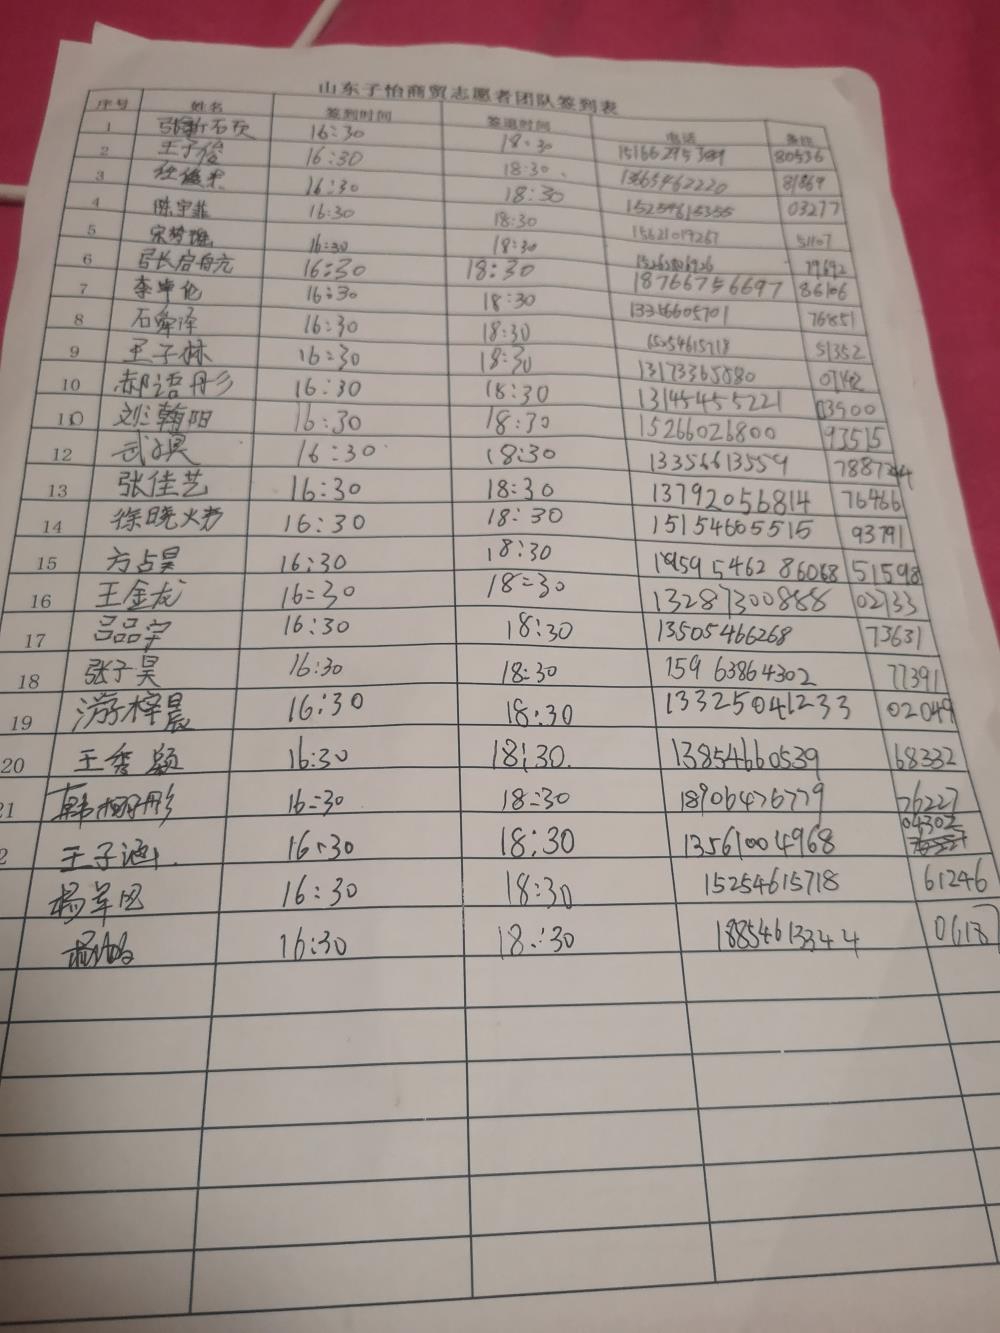 山东子怡商贸志愿者团队签到表
序号 姓名 签到时间 签退时间 电话 备注
1 16:30 18:30 80536
2 王子俊 16:30 18:30 13665462220 81869
3 16:30 18:30 15254615355 03277
4 陈宇菲 16:30 18:30 15621019267 51107
5 宋梦瑶 16:30 18:30 79692
6 16:30 18:30 18766756697 86106
7 李坤伦 16:30 18:30 13356605701 76851
8 石舜泽 16:30 18:30 15254615718 51352
9 王子林 16:30 18:30 13173365880 07142
10 郝语彤 16:30 18:30 13145455221 03500
11 刘瀚阳 16:30 18:30 15266026800 93515
12 武昊 16:30 18:30 13356613559
13 张佳艺 16:30 18:30 13792056814 76466
14 徐晓燃 16:30 18:30 15154605515 93791
15 方占昊 16:30 18:30 51598
16 王金龙 16:30 18:30 13287300888 02733
17 吕品宇 16:30 18:30 13505466268 73631
18 张子昊 16:30 18:30 159 63864302 77391
19 游梓晨 16:30 18:30 133325041233 02049
20 王秀颖 16:30 18:30 13854660539 68332
21 韩栩彤 16:30 18:30 18906476779 76227
2 王子涵 16:30 18:30 13561004968 04302
16:30 18:30 15254615718 61246
16:30 18:30 18854613344 0618